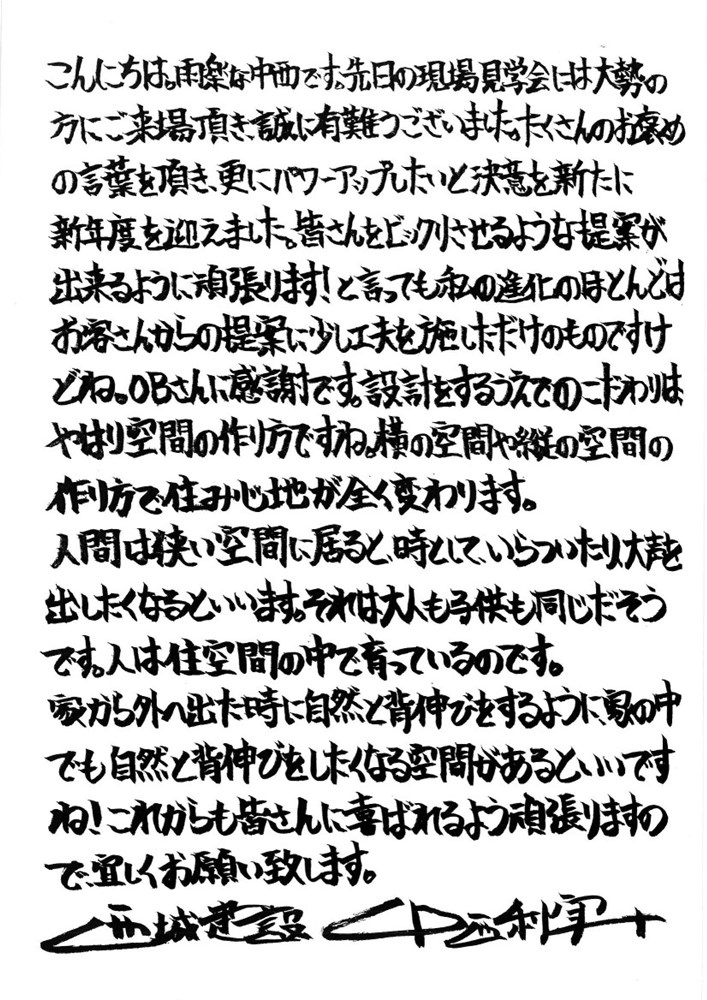 こんにちは。雨楽な中西です。先日の現場見学会には大勢の
方にご来場頂き、誠に有難うございました。たくさんのお褒め
の言葉を頂き、更にパワーアップしたいと決意を新たに
新年度を迎えました。皆さんをビックリさせるような提案が
出来るように頑張ります！と言っても私の進化のほとんどは
お客さんからの提案に少し工夫を施しただけのものですけ
どね。OBさんに感謝です。設計をするうえでのこだわりは、
やはり空間の作り方ですね。横の空間や縦の空間の
作り方で住み心地が全く変わります。
人間は狭い空間に居ると、時として、いらついたり、大声を
出したくなるといいます。それは大人も子供も同じだそう
です。人は住空間の中で育っているのです。
家から外へ出た時に自然と背伸びをするように、家の中
でも自然と背伸びをしたくなる空間があるといいです
ね！これからも皆さんに喜ばれるよう頑張りますの
で、宜しくお願い致します。
西城建設 中西利軍